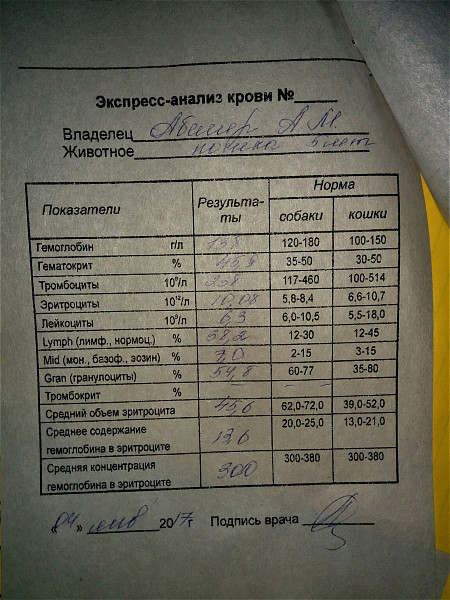 Экспресс-анализ крови №
Владелец А М
Животное 5 лет
Показатели Результаты Норма
собаки кошки
Гемоглобин г/л 138 120-180 100-150
Гематокрит % 45,9 35-50 30-50
Тромбоциты 10⁹/л 117-460 100-514
Эритроциты 10¹²/л 10,08 5,8-8,4 6,6-10,7
Лейкоциты 10⁹/л 6,3 6,0-10,5 5,5-18,0
Lymph (лимф., нормоц.) % 38,2 12-30 12-45
Mid (мон., базоф., эозин) % 7,0 2-15 3-15
Gran (гранулоциты) % 54,8 60-77 35-80
Тромбокрит %
Средний объем эритроцита 45,6 62,0-72,0 39,0-52,0
Среднее содержание 20,0-25,0 13,0-21,0
гемоглобина в эритроците 13,6
Средняя концентрация 300-380 300-380
гемоглобина в эритроците 300
«04» янв 2017г Подпись врача